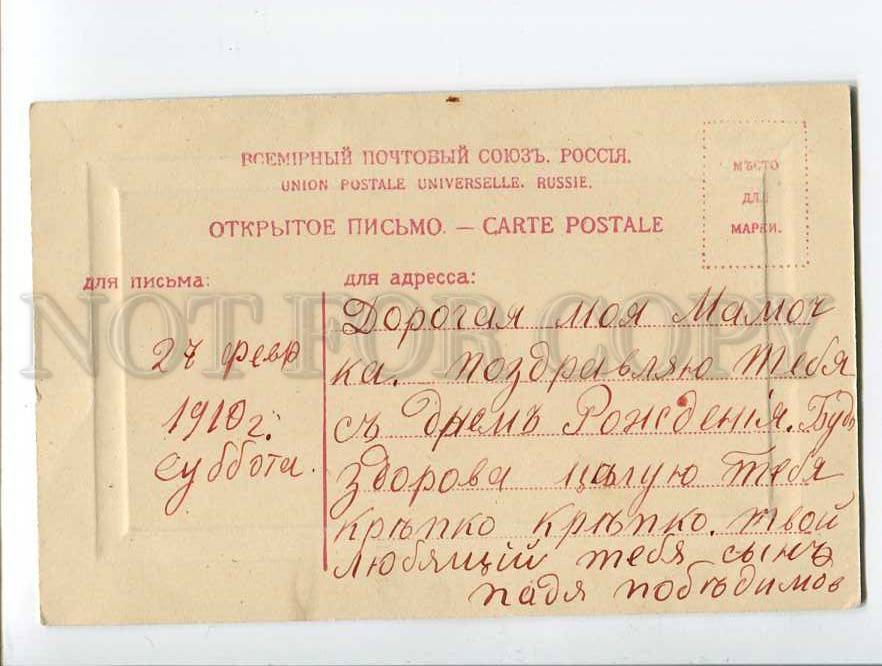 ВСЕМІРНЫЙ ПОЧТОВЫЙ СОЮЗЪ. РОССІЯ.
UNION POSTALE UNIVERSELLE. RUSSIE.
ОТКРЫТОЕ ПИСЬМО. — CARTE POSTALE
МѢСТО
ДЛЯ
МАРКИ.
для письма:
для адресса:
27 февр
1910 г.
суббота.
Дорогая моя Мамоч
ка. поздравляю тебя
съ днемъ Рожденія. Будь
здорова цѣлую тебя
крѣпко крѣпко. твой
любящій тебя сынъ
падя побѣдимов
NOT FOR COPY